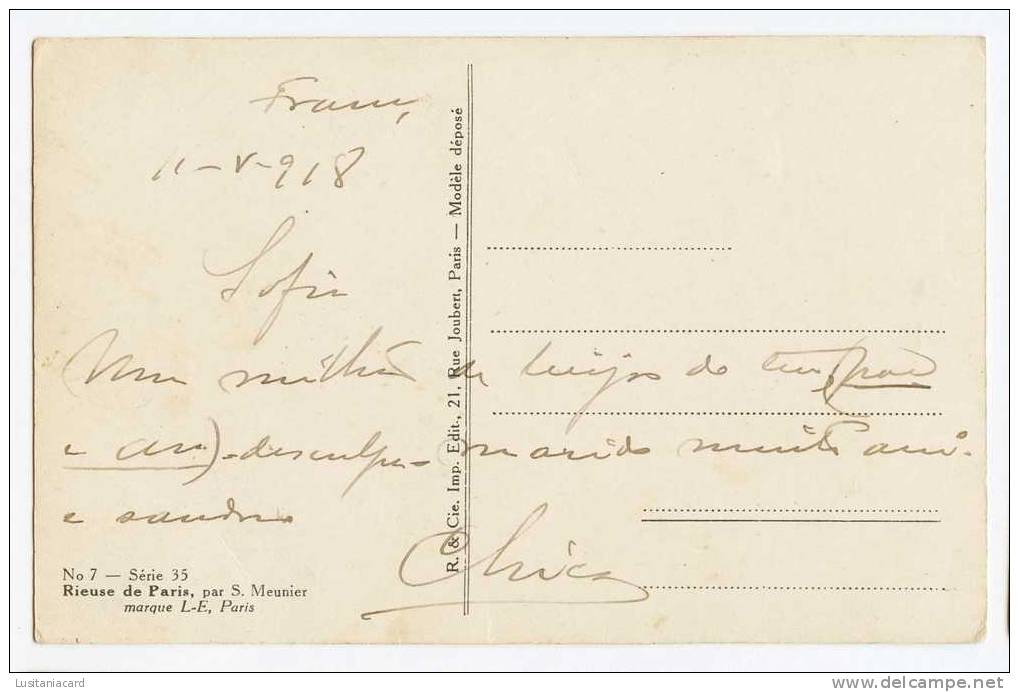 11-V-918
Sofia
Um milhão de beijos do teu
e desculpa marido muito am.º
e
Chico
R. & Cie. Imp. Edit., 21, Rue Joubert, Paris — Modèle déposé
No 7 — Série 35
Rieuse de Paris, par S. Meunier
marque L-E, Paris
Lusitaniacard
www.delcampe.net